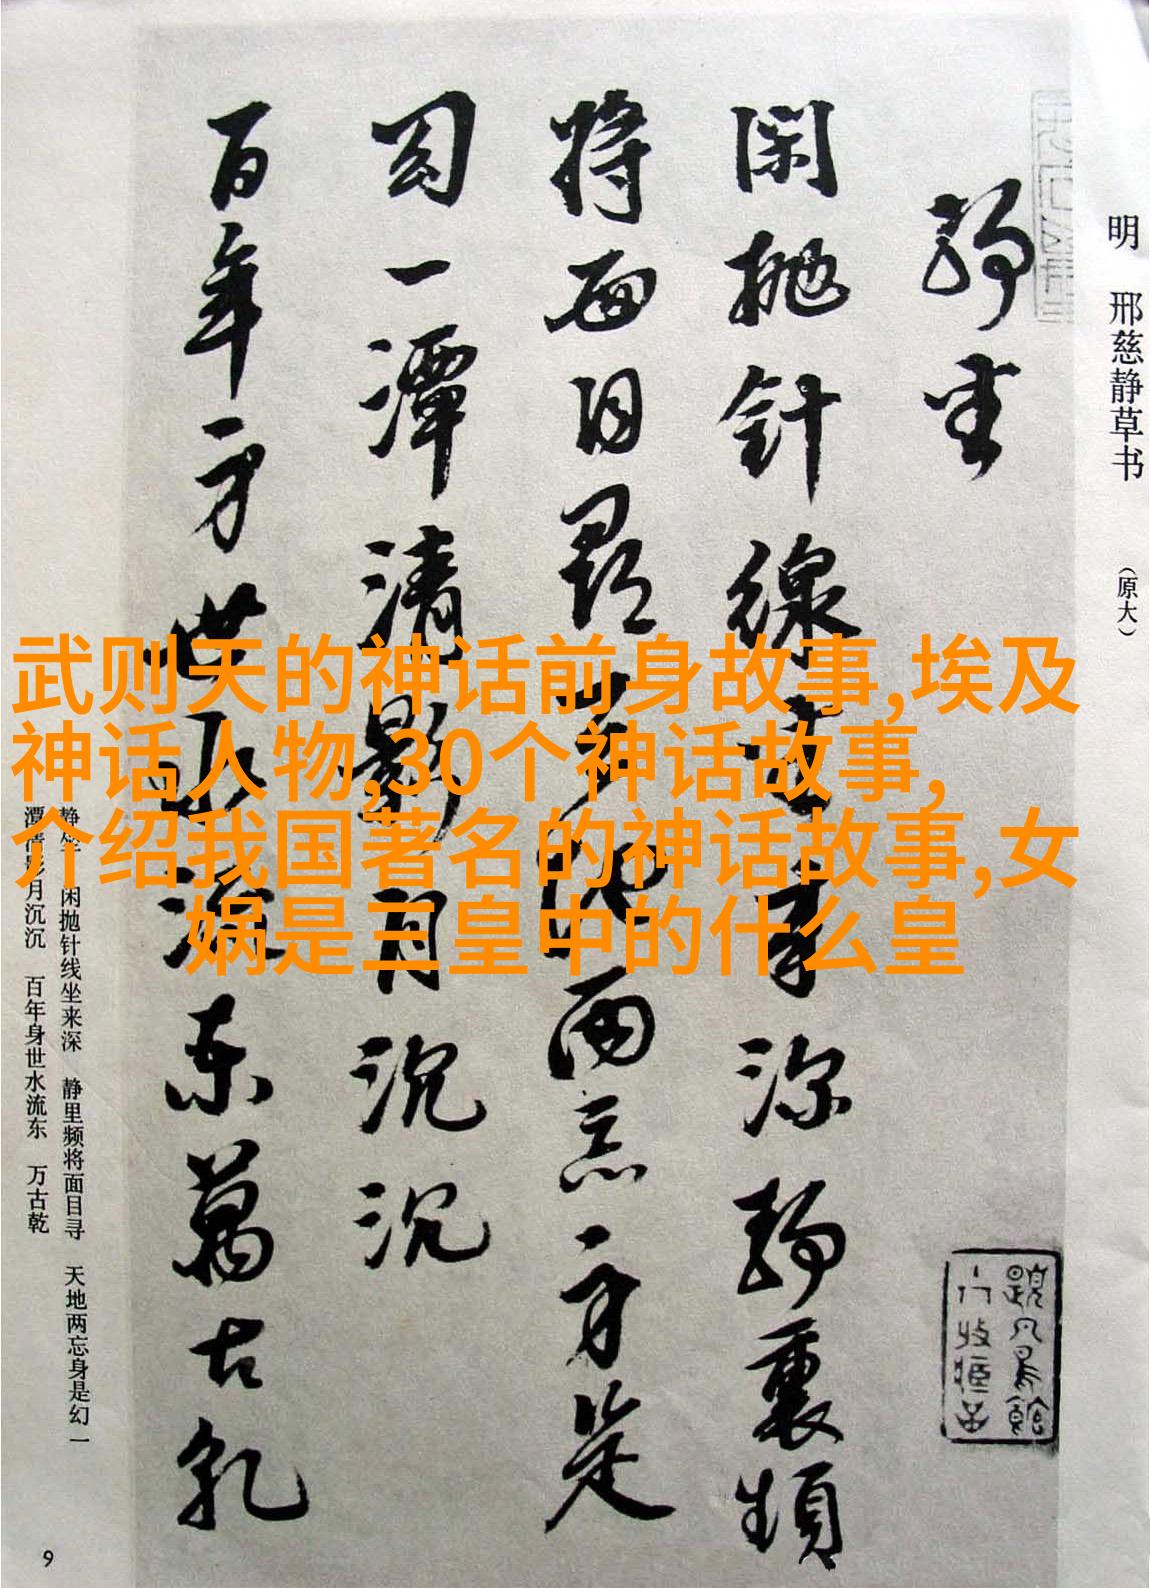 明 邢慈静草书 （原大）
静坐
閑抛針線坐来深静裏頻
将面目尋天地两忘身是
幻一潭清影月沉沉
百年身世水流东萬古乹
武则天的神话前身故事,埃及
神话人物,30个神话故事,
介绍我国著名的神话故事,女
娲是三皇中的什么皇
静坐 闲抛针线坐来深 静里频将面目寻 天地两忘身是幻 一
潭清影月沉沉 百年身世水流东 万古乾
9